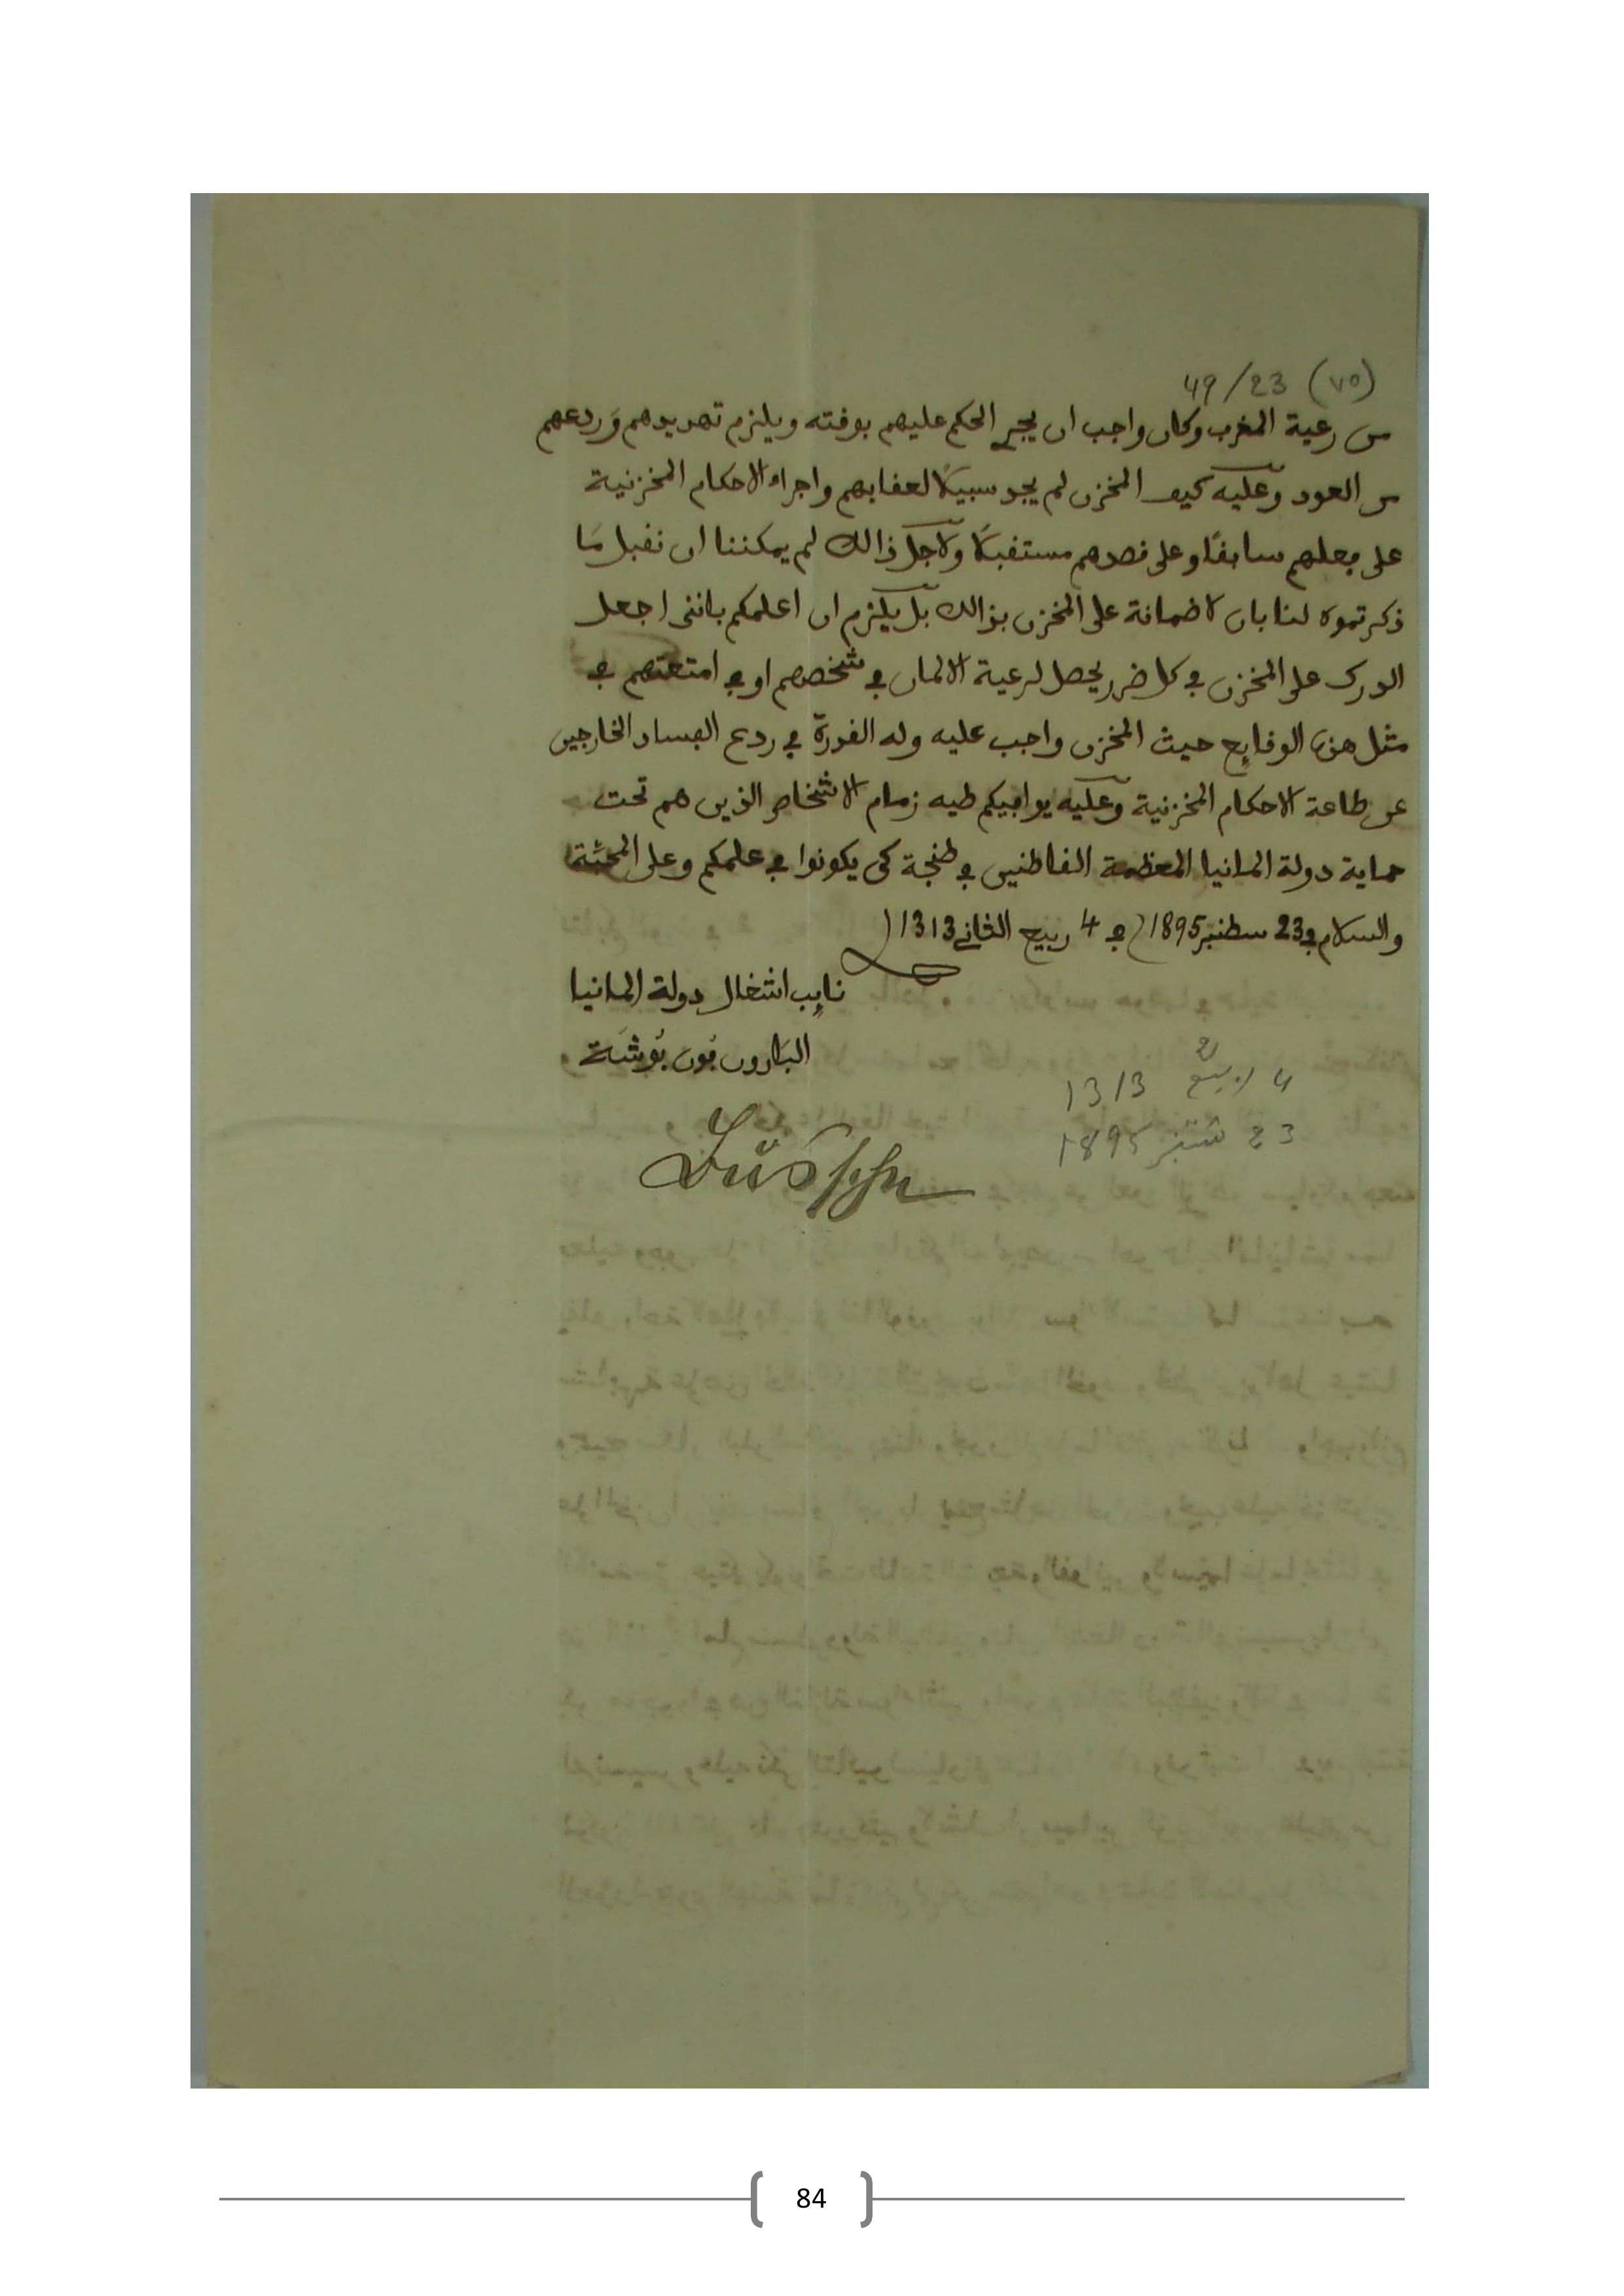 (٧٥) 49/23
من رعية المغرب وكان واجب ان يجري الحكم عليهم بوفته ويلزم تهديدهم وَردعهم
من العود وعَليه كيف المخزن لم يجد سبيلًا لعفابهم واجراء الاحكام المخزنية
على فعلهم سابقًا وعلى فصدهم مستفبلًا ولاجل ذالك لم يمكننا ان نفبل مَا
ذكرتموه لنا بان لا ضمانة على المخزن بذالك بَل يَلزم ان اعلمكم بانني اجعل
الدرك على المخزن في كل ضرر يحصل لرعية الالمان في شخصهم او في امتعتهم في
مثل هذه الوفايع حيث المخزن واجب عليه وله الفدرة في ردع الفساد الخارجين
عن طاعة الاحكام المخزنية وعَليه يوافيكم طيه زمام الاشخاص الذين هم تحت
حماية دولة المانيا المعظمة الفاطنين في طنجة كى يكونوا في علمكم وعلى المحبّة
والسلام في 23 سطنبر 1895 / في 4 ربيع الثاني 1313
نايب اشغال دولة المانيا
البَارون فون بُوشَة
4 ربيع 2 1313
23 شتنبر 1895
84